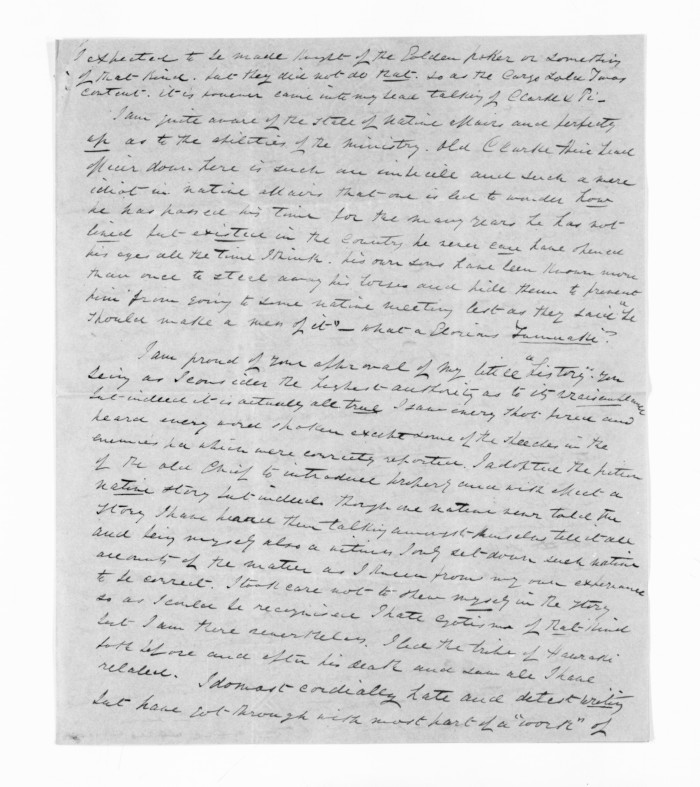 I expected to be made Knight of the Golden poker or something
of that Kind. but they did not do that. so as the Cargo sold I was
content. it is however came into my head talking of Clarke &
I am quite aware of the state of native affairs and perfectly
up as to the abilities of the ministry. Old Clarke their head
officer down here is such an imbecile and such a mere
idiot in native affairs that one is led to wonder how
he has passed his time for the many years he has not
lived but existed in the Country he never can have opened
his eyes all the time I think. his own sons have been Known more
than once to steal away his horses and hide them to prevent
him from going to some native meeting lest as they said "he
should make a mess of it" – what a Glorious Tumuaki?
I am proud of your approval of my little "history". you
being as I consider the highest authority as to its vraisemblance
but indeed it is actually all true I saw every shot fired and
heard every word spoken except some of the speeches in the
enemies pa which were correctly reported. I adopted the fiction
of the old Chief to introduce properly and with effect a
native story but indeed though one native never told the
story I have heard them talking amongst themselves tell it all
and being myself also a witness I only set down such native
accounts of the matter as I knew from my own experience
to be correct. I took care not to shew myself in the story
so as I could be recognised I hate egotisms of that Kind
but I am there nevertheless. I led the tribe of Hauraki
both before and after his death and saw all I have
related. I do most cordially hate and detest writing
but have got through with most part of a "work" of